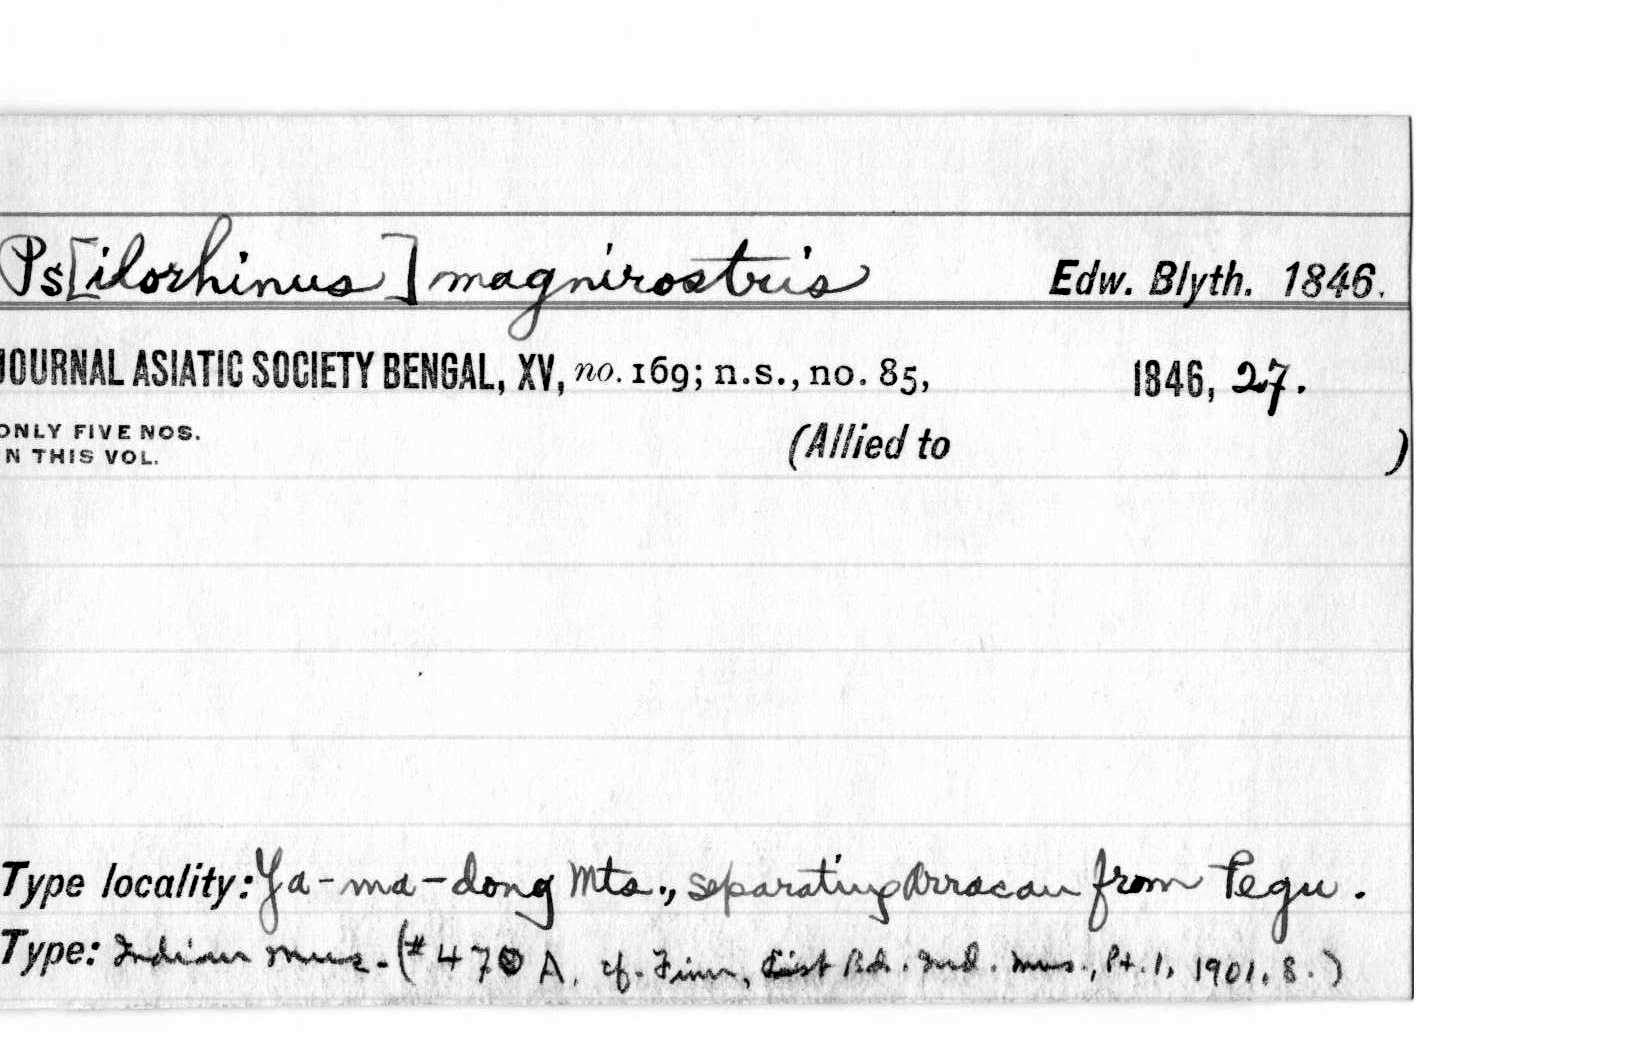 Ps[ilorhinus] magnirostris Edw. Blyth. 1846.
JOURNAL ASIATIC SOCIETY BENGAL, XV, no. 169; n.s., no. 85, 1846, 27.
ONLY FIVE NOS.
IN THIS VOL.
(Allied to )
Type locality: Ya-ma-dong Mts., separating Arracan from Pegu.
Type: Indian Mus. (#470 A, cf. Finn, List Bds. Ind. Mus., Pt. 1, 1901. 8.)